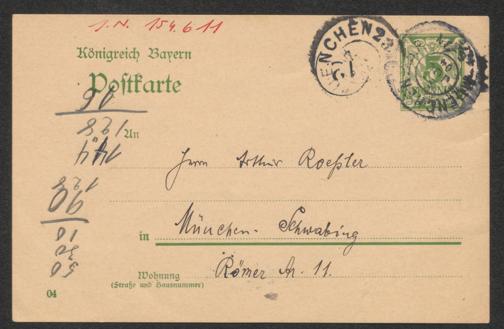 I.N. 154.611
Königreich Bayern
Postkarte
MUENCHEN 23
5
An
Herrn Arthur Roeßler
in München-Schwabing
Wohnung
(Straße und Hausnummer)
Römer str. 11.
04